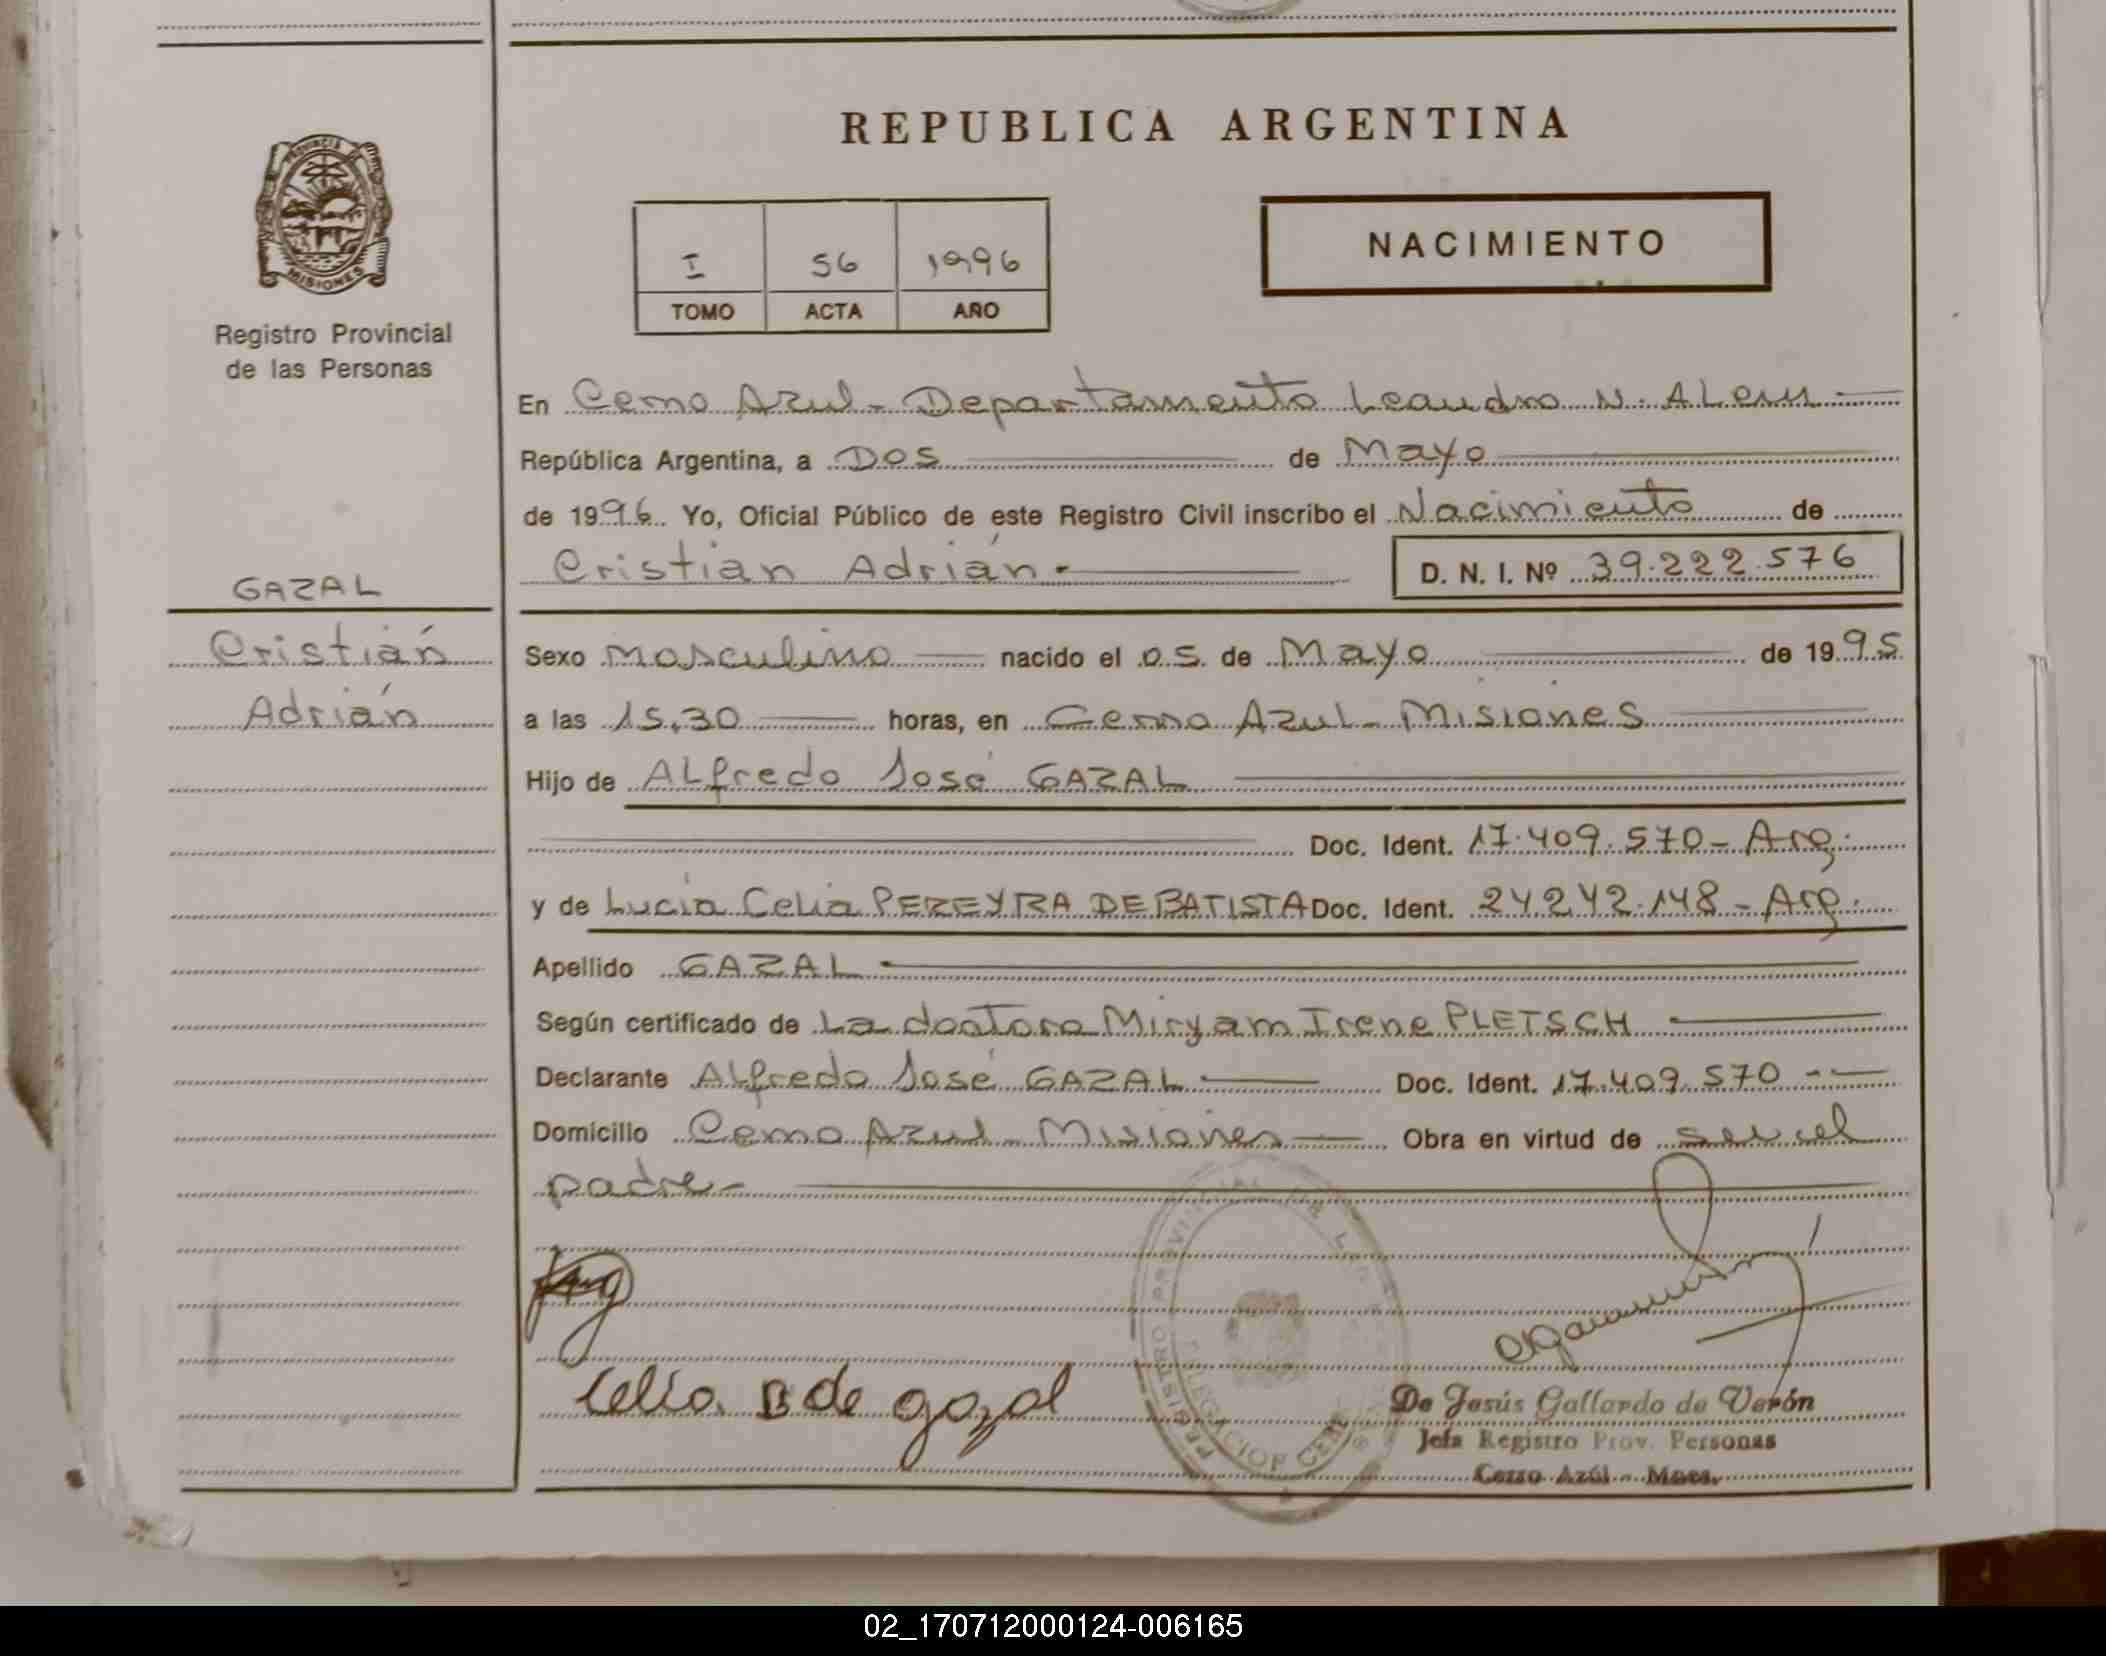 REPUBLICA ARGENTINA
PROVINCIA DE
MISIONES
Registro Provincial
de las Personas
I 56 1996
TOMO ACTA AÑO
NACIMIENTO
En Cerro Azul - Departamento Leandro N. ALem
República Argentina, a Dos de Mayo
de 1996. Yo, Oficial Público de este Registro Civil inscribo el Nacimiento de
Cristián Adrián.-
D. N. I. Nº 39.222.576
GAZAL
Cristián
Adrián
Sexo masculino nacido el 05 de Mayo de 1995
a las 15,30 horas, en Cerro Azul - Misiones
Hijo de ALfredo José GAZAL
Doc. Ident. 17.409.570 - Arg.
y de Lucía Celia PEREYRA DE BATISTA Doc. Ident. 24242.148 - Arg.
Apellido GAZAL
Según certificado de La doctora Miryam Irene PLETSCH
Declarante ALfredo José GAZAL Doc. Ident. 17.409.570 --
Domicilio Cerro Azul - Misiones Obra en virtud de ser el
padre -
REGISTRO PROVINCIAL DE LAS
DELEGACION CERRO
Celia B de gazal
De Jesús Gallardo de Verón
Jefa Registro Prov. Personas
Cerro Azúl - Mnes.
02_170712000124-006165